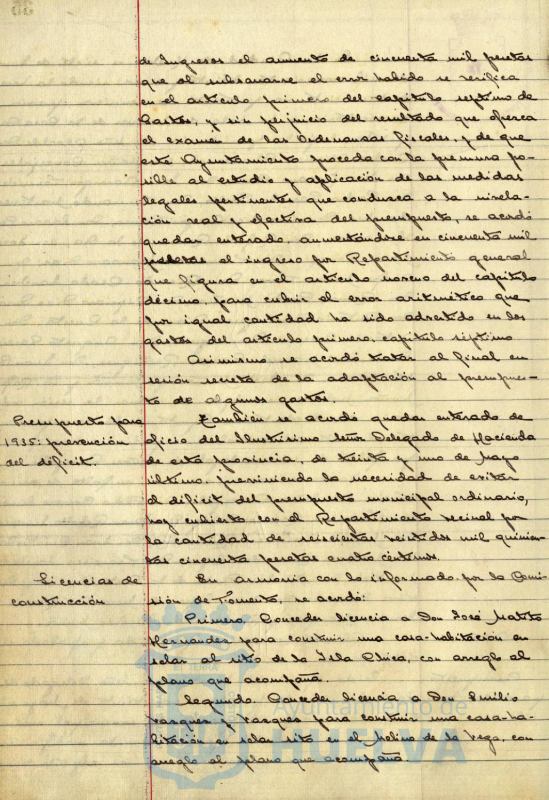 de Ingresos el aumento de cincuenta mil pesetas
que al subsanarse el error habido se verifica
en el artículo primero del capítulo septimo de
Gastos, y sin perjuicio del resultado que ofrezca
el examen de las Ordenanzas fiscales, y de que
este Ayuntamiento proceda con la premura po-
sible al estudio y aplicación de las medidas
legales pertinentes que conduzca a la nivela-
ción real y efectiva del presupuesto, se acordó
quedar enterado, aumentándose en cincuenta mil
pesetas el ingreso por Repartimiento general
que figura en el artículo noveno del capítulo
décimo, para cubrir el error aritmético que
por igual cantidad ha sido advertido en los
gastos del artículo primero, capítulo séptimo
Asimismo se acordó tratar al final en
sesión secreta de la adaptación al presupues-
to de algunos gastos.
Presupuesto para
1935: prevención
del déficit.
También se acordó quedar enterado de
oficio del Ilustrísimo Señor Delegado de Hacienda
de esta provincia, de treinta y uno de Mayo
último, previniendo la necesidad de evitar
el déficit del presupuesto municipal ordinario,
hoy cubierto con el Repartimiento vecinal por
la cantidad de seiscientas veintidos mil quinien-
tas cincuenta pesetas cuatro céntimos.
Licencias de
construcción
En armonia con lo informado por la Comi-
sión de Fomento, se acordó:
Primero. Conceder licencia a Don José
Hernandez para construir una casa-habitación en
solar al sitio de la Isla Chica, con arreglo al
plano que acompaña.
Segundo. Conceder licencia a Don Emilio
Vazquez y Vazquez para construir una casa-ha-
bitación en solar sito en el Molino de la Vega, con
arreglo al plano que acompaña.
Ayuntamiento de
HUELVA